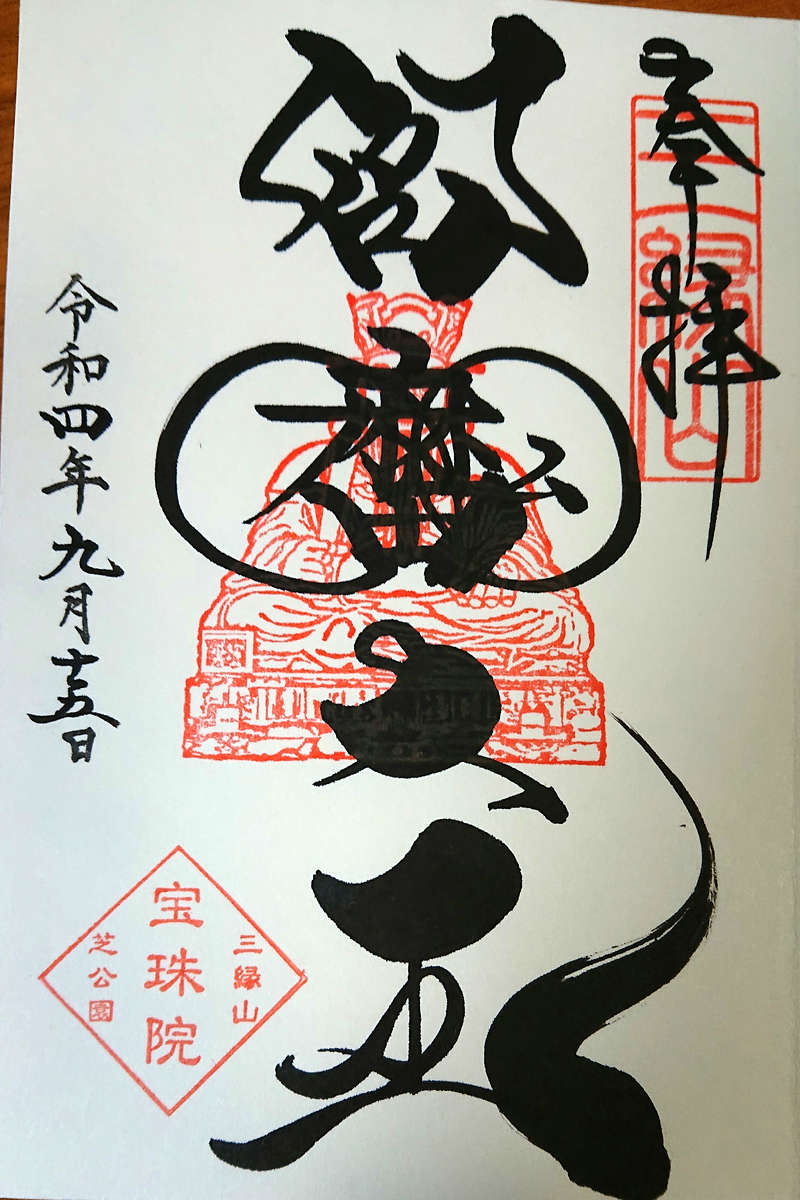 奉拝
三縁山
閻魔大王
令和四年九月十五日
三縁山
宝珠院
芝公園